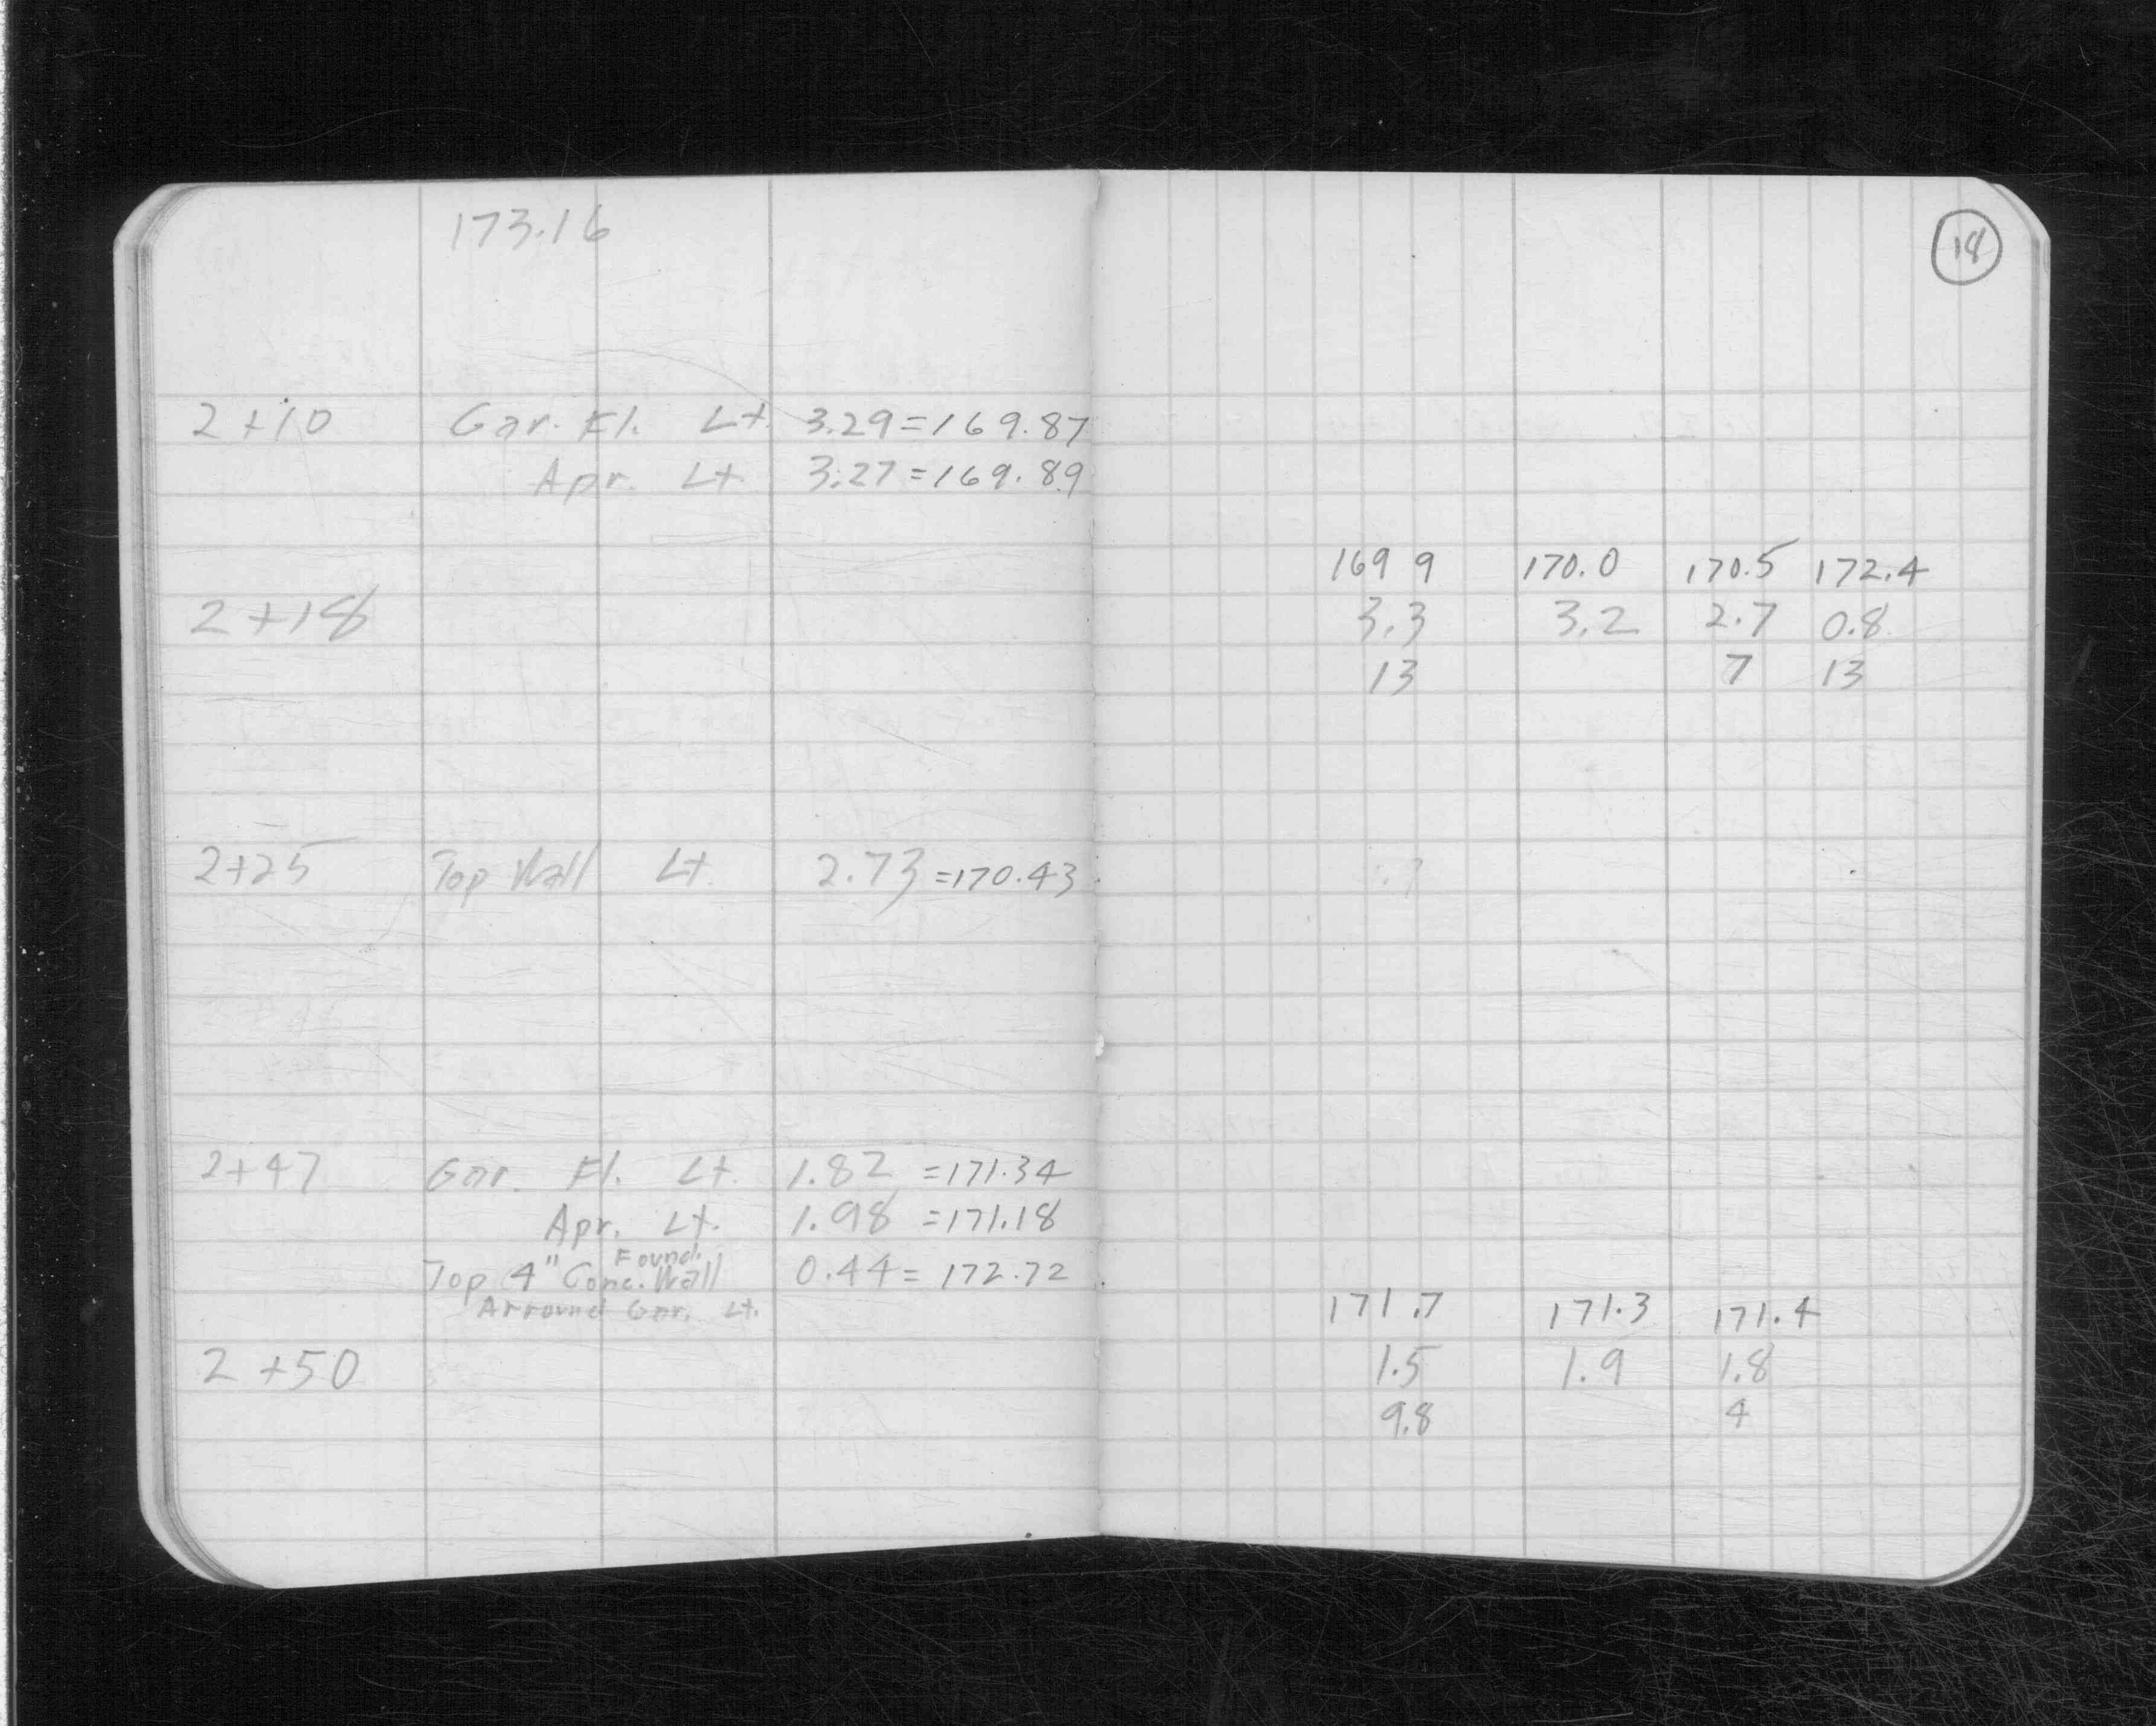 173.16
18
2+10 Gar. Fl. Lt. 3.29=169.87
Apr. Lt. 3.27=169.89
169 9 170.0 170.5 172.4
2+18 3.3 3.2 2.7 0.8
13 7 13
2+25 Top Wall Lt. 2.73=170.43
2+47 Gar. Fl. Lt. 1.82 =171.34
Apr. Lt. 1.98 =171.18
Found.
Top 4" Conc. Wall 0.44= 172.72
Arround Gar. Lt.
171.7 171.3 171.4
2+50 1.5 1.9 1.8
9.8 4